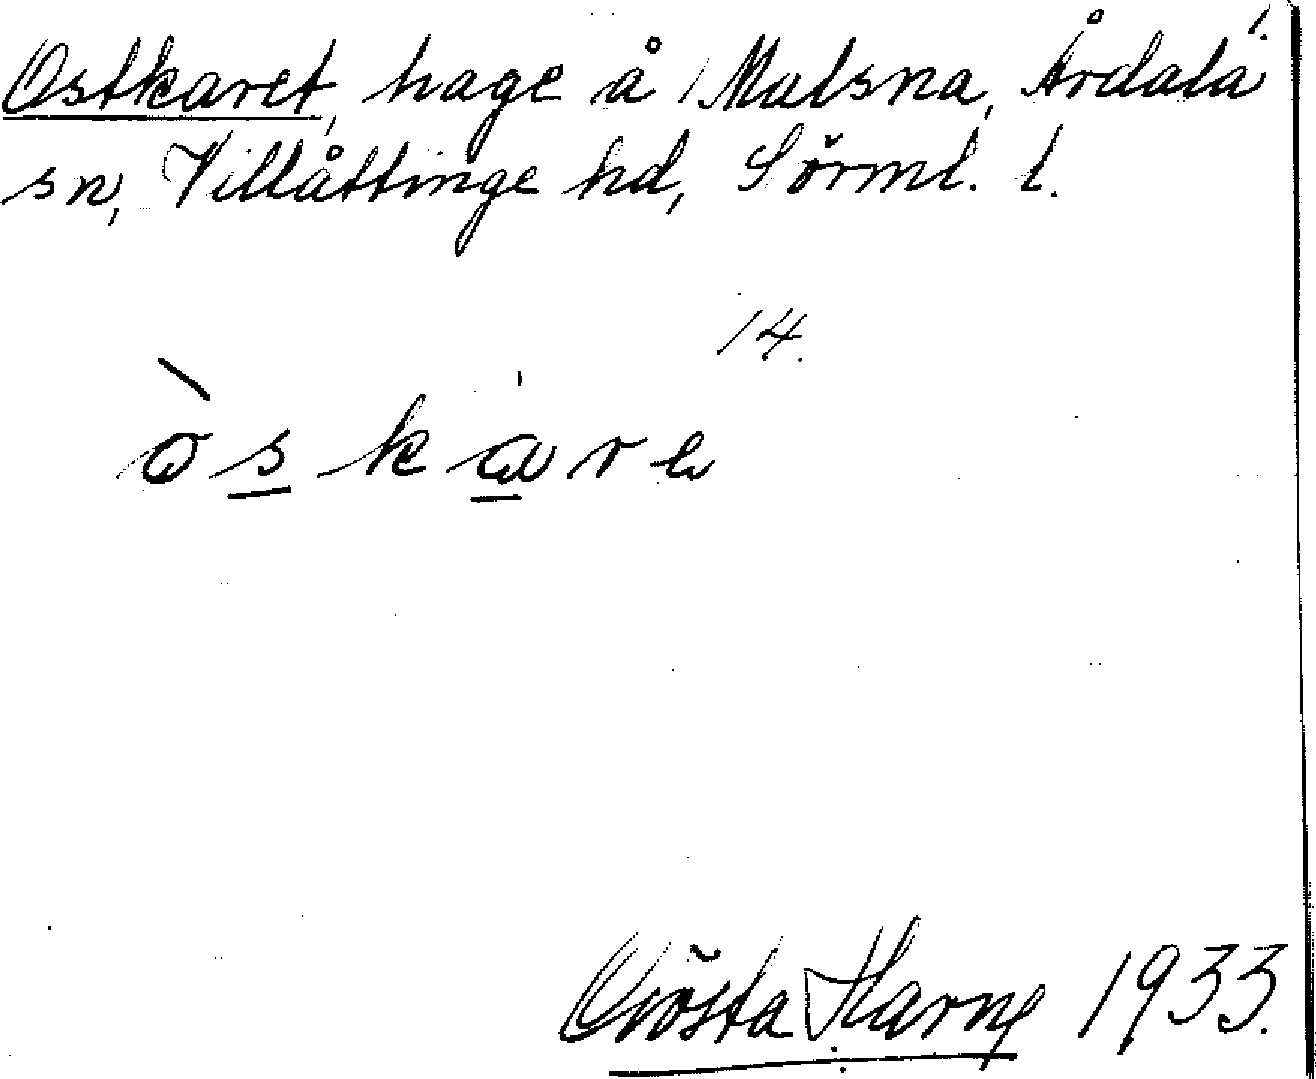 1.
Ostkaret, hage å Malsna, Årdala
sn, Villåttinge hd, Sörml. l.
14.
òskare
Gösta Harne 1933.